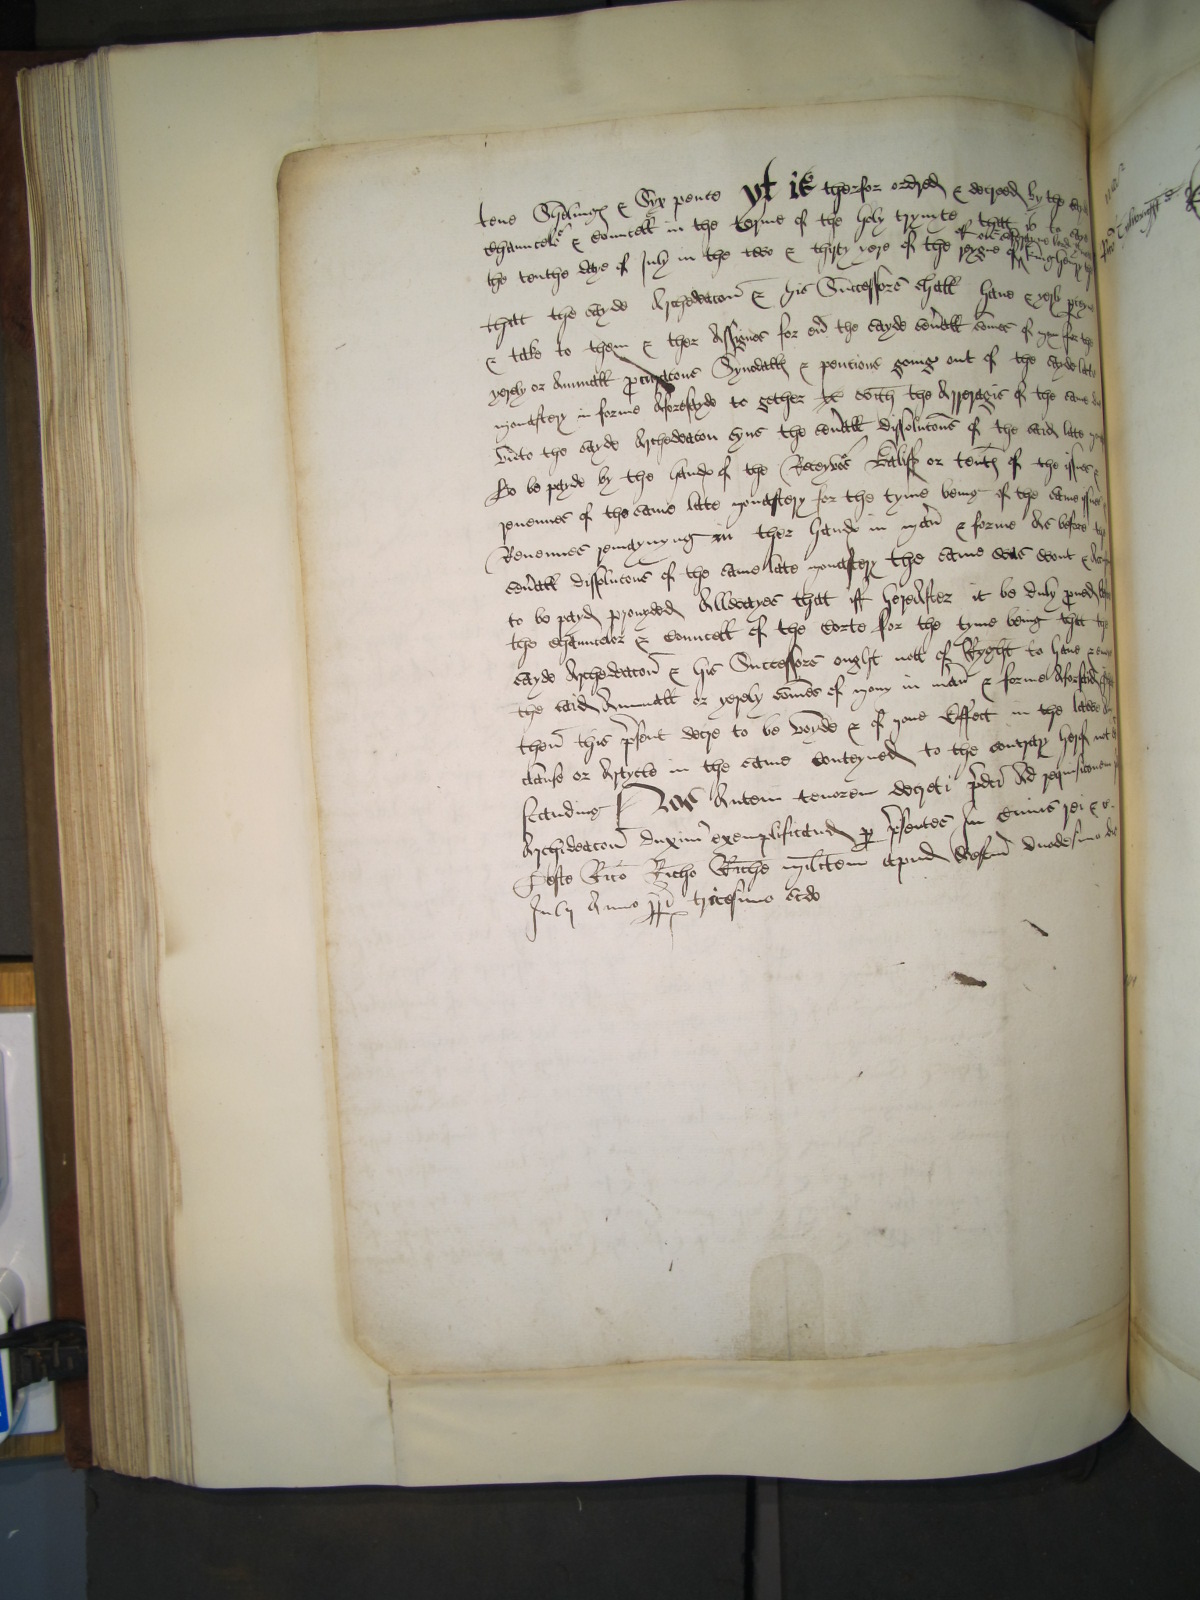 tene Shelinges & Syx pence yt is therfor ordred & decreed by the sayd
Chaunceler & Councell in the terme of the holy trynyte that is to saye
the tenthe daye of July in the two & thyrty yere of the reygne of
of our soveraigne lord kyng henry
that the sayde Archedeacon & his Successors shall have & yerly
& take to them & ther Assignes for ever the sayde severall somes of mony for the
yerely or Annuall procuracons Synodalls & pencions going out of the sayde late
monastery in forme Aforesayde to gether with the Arreragis of the same due
vnto the sayde Archedeacon syns the severall dissolucons of the said late
to be payde by the hands of the Receyver Baliff or tents of the issues &
revenues of the same late monastery for the tyme being of the same issues
Revenues remaynyng in ther hands in maner & forme As before the
severall dissolucons of the same late monastery the same was wont &
to be payd provyded Allwayes that iff hereAfter it be duly proved
the Chauncelor & Councell of the Corte for the tyme being that the
sayde Archedeacon & his Successors ought nott of Ryght to have
the said Annuall or yerely somes of mony in maner & forme Aforsaid
then this present decre to be voyde & of none Effect in the lawe Any
clause or Artycle in the same conteyned to the contrary herof not
standing Nos Autem tenorem decreti predicti Ad requisicionem
Archideacon duximus exemplificand per presentes In Cuius rei &c
Teste Rico Riche militem apud Westm duodecimo die
July Anno tricesimo scdo